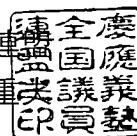 慶應義塾
全国議員
連盟之印